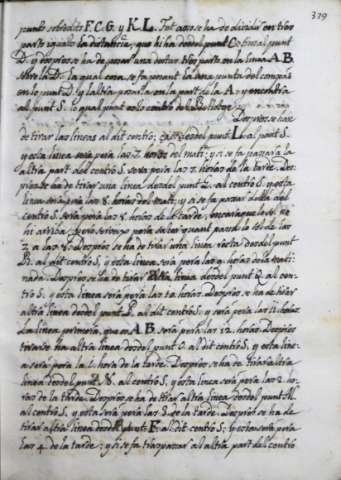 329
punto sobredits F. C. G. y K. L. Fet açò se ha de dividir en tres
parts iguals la distancia, que hi ha desdel punt C fins al punt
D. y despres se ha de posar una de estas tres parts en la linea A B
sobre la D. la qual cosa se fa posant la una punta del compas
en lo punt D. y la altra posarla en la part de la A. y encendra
al punt S. lo qual punt es lo centro del
Despres se han
de tirar las lineas al dit centro, desdel punt L. al punt S.
y esta linea sera pera las 7 horas del mati; y si se passara la
altra part del centro S. sera pera las 7 horas de la tarde. Des-
pres se ha de tirar una linea desdel punt Q. al centro S. y esta
linea sera pera las 8 horas del mati; y si se passar della del
centro S. sera pera las 8 horas de la tarde, encaraque lo sol no
hi arriba, pero serveix pera saber quant
a las 8. Despres se ha de tirar una linea recta desdel punt
R. al dit centro S. y esta linea sera pera las 9 horas del mati-
nada. Despres se ha de tirar linea desdel punt Q. al cen-
tro S. y esta linea sera pera las 10 horas. Despres se ha de tirar
altra linea desdel punt P. al dit centro S. y sera pera las 11 horas
La linea primera, que es A B. sera pera las 12 horas. Despres
tirarse ha altra linea desdel punt O. al dit centro S. y esta line-
a sera pera la 1. hora de la tarde. Despres se ha de tirar altra
linea desdel punt N. al centro S. y esta linea sera pera las 2. ho-
ras de la tarde. Despres se ha de tirar altra linea desdel punt M.
al centro S. y esta sera pera las 3. de la tarde. Despres se ha de
tirar altra linea desdel punt F. al dit centro S. y esta sera pera
las 4. de la tarde; y si se fa traspassar al altra part del centro